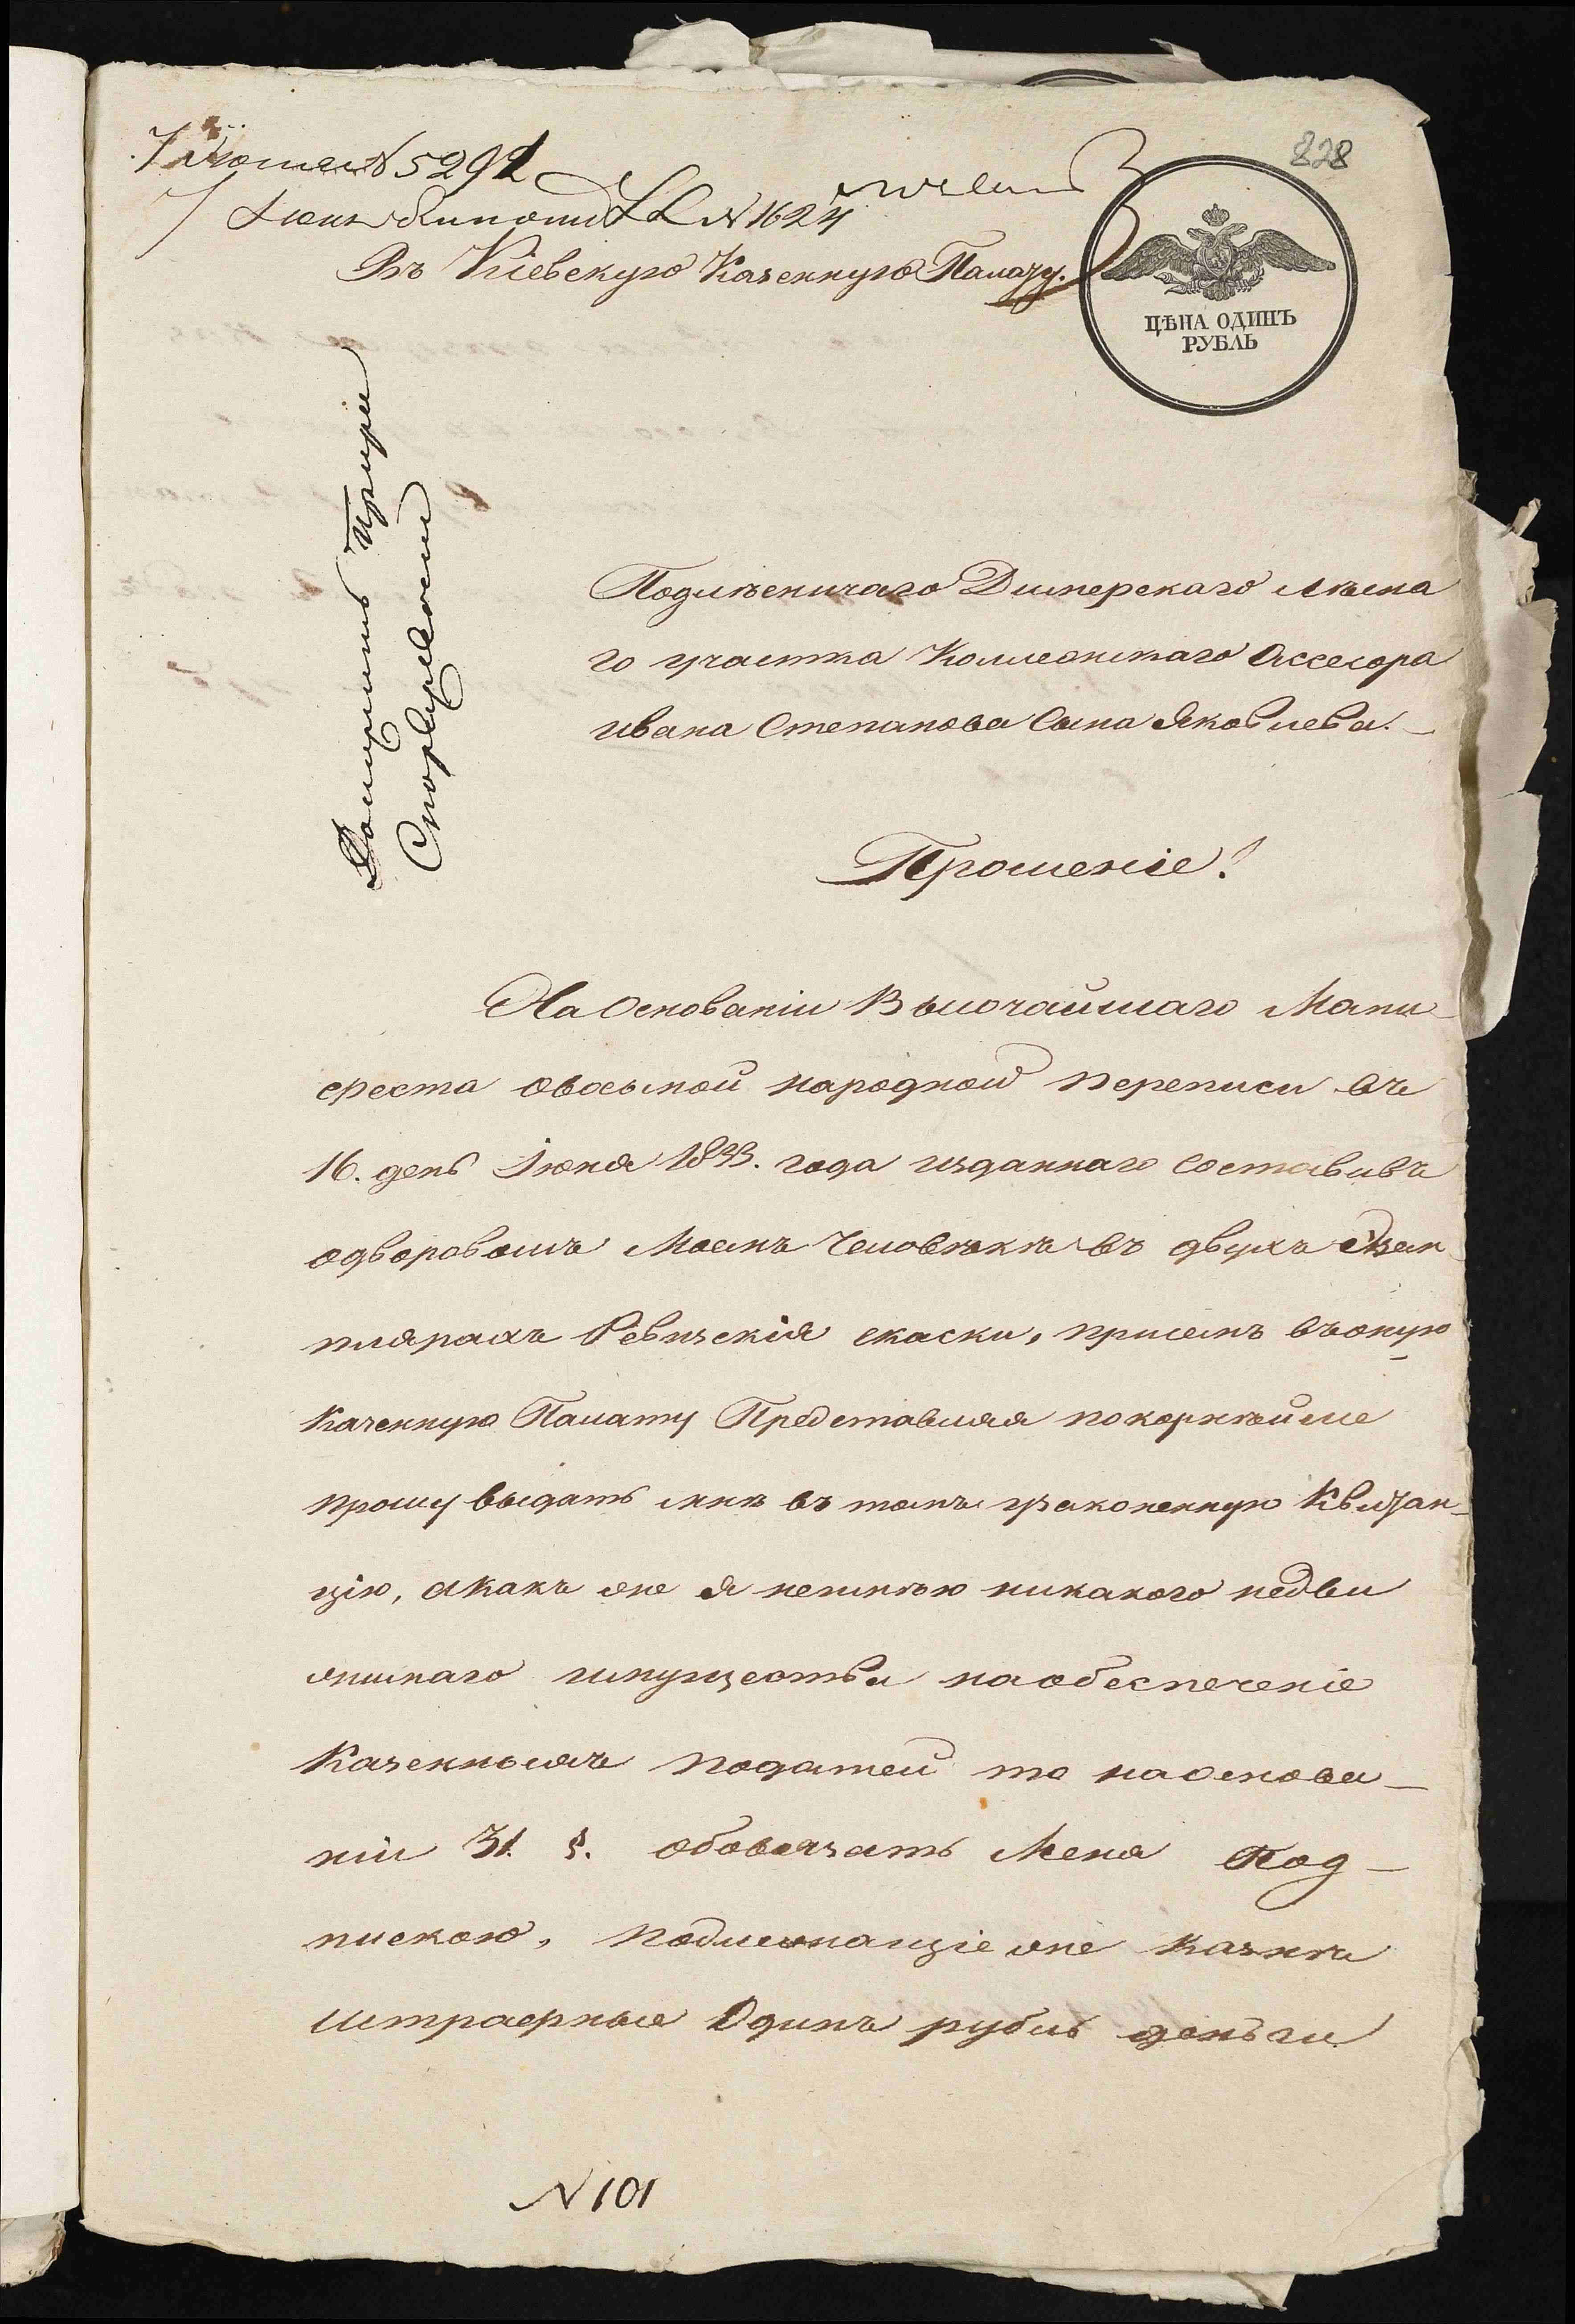 828
№ 5292
№ 1624
Въ Кіевскую Казенную Палату.
ЦѢНА ОДИНЪ
РУБЛЬ
Подлѣсничаго Дымерскаго лѣсна
го участка Коллежскаго Ассесора
Ивана Степанова Сына Яковлева.
Прошеніе!
На Основаніи Высочайшаго Мани-
феста овосьмой народной переписи въ
16. день Іюня 1833. года изданнаго составивъ
одворовомъ Моемъ Человѣкѣ въ двухъ Экзем
плярахъ Ревизскія скаски, присемъ въоную
Казенную Палату Представляя покорнѣйше
прошу выдать мнѣ въ томъ узаконенную Квитан-
цію, акакъ же я неимѣю никакого недви
жимаго имущества наобеспеченіе
Казенныхъ податей то наоснова-
ніи 31. §. обовязать Меня Под-
пискою, подлежащіе же казнѣ
штрафные Одинъ рубль деньги
N 101